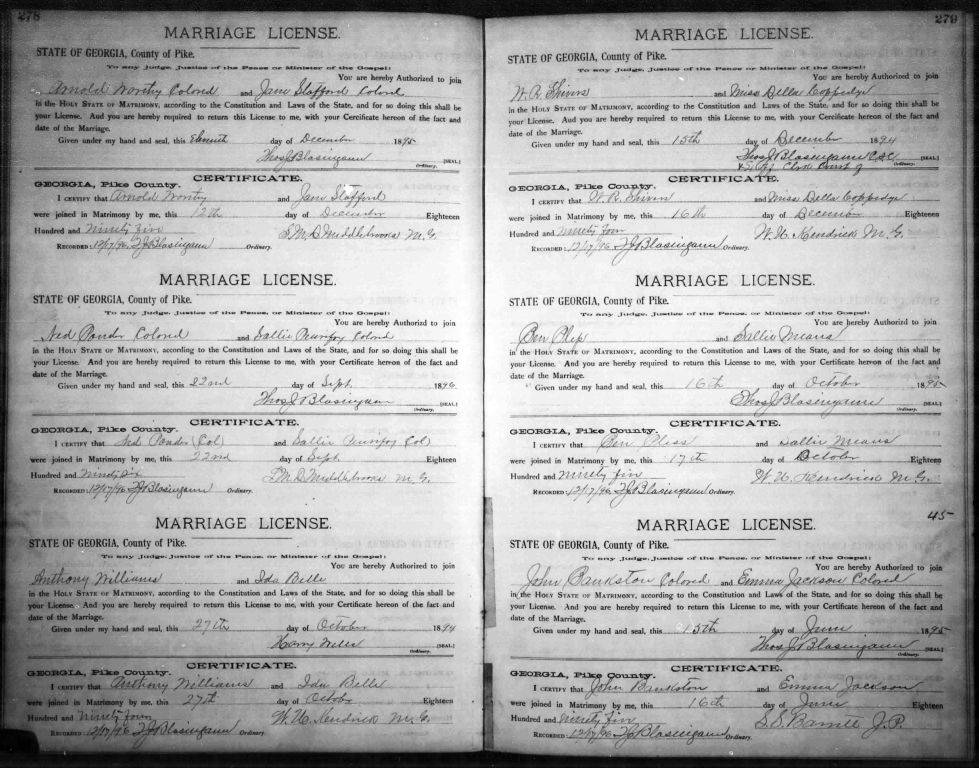 278
MARRIAGE LICENSE.
STATE OF GEORGIA, County of Pike.
To any Judge, Justice of the Peace, or Minister of the Gospel:
You are hereby Authorized to join
Arnold Worthy Colored and Jane Stafford Colored
in the HOLY STATE OF MATRIMONY, according to the Constitution and Laws of the State, and for so doing this shall be
your License. And you are hereby required to return this License to me, with your Certificate hereon of the fact and
date of the Marriage.
Given under my hand and seal, this Eleventh day of December 1895
Thos J Blasingame [SEAL]
Ordinary.
CERTIFICATE.
GEORGIA, Pike County.
I CERTIFY that Arnold Worthy and Jane Stafford
were joined in Matrimony by me, this 12th day of December Eighteen
Hundred and ninety five L. M. D. Middlebrooks M. G.
RECORDED 12/17/96 T J Blasingame Ordinary.
MARRIAGE LICENSE.
STATE OF GEORGIA, County of Pike.
To any Judge, Justice of the Peace, or Minister of the Gospel:
You are hereby Authorized to join
Ned Ponder Colored and Sallie Purifoy Colored
in the HOLY STATE OF MATRIMONY, according to the Constitution and Laws of the State, and for so doing this shall be
your License. And you are hereby required to return this License to me, with your Certificate hereon of the fact and
date of the Marriage.
Given under my hand and seal, this 22nd day of Sept. 1896.
Thos J Blasingame [SEAL]
Ordinary.
CERTIFICATE.
GEORGIA, Pike County.
I CERTIFY that Ned Ponder (Col) and Sallie Purifoy Col)
were joined in Matrimony by me, this 22nd day of Sept. Eighteen
Hundred and ninety six L. M. D. Middlebrooks M. G.
RECORDED 12/17/96 T J Blasingame Ordinary.
MARRIAGE LICENSE.
STATE OF GEORGIA, County of Pike.
To any Judge, Justice of the Peace, or Minister of the Gospel:
You are hereby Authorized to join
Anthony Williams and Ida Belle
in the HOLY STATE OF MATRIMONY, according to the Constitution and Laws of the State, and for so doing this shall be
your License. And you are hereby required to return this License to me, with your Certificate hereon of the fact and
date of the Marriage.
Given under my hand and seal, this 27th day of October 1894
Harry Wells [SEAL]
Ordinary.
CERTIFICATE.
GEORGIA, Pike County.
I CERTIFY that Anthony Williams and Ida Belle
were joined in Matrimony by me, this 27th day of October Eighteen
Hundred and ninety four W. H. Kendrick M. G.
RECORDED 12/17/96 T J Blasingame Ordinary.
279
MARRIAGE LICENSE.
STATE OF GEORGIA, County of Pike.
To any Judge, Justice of the Peace, or Minister of the Gospel:
You are hereby Authorized to join
W. R. Shivers and Miss Della Coppedge
in the HOLY STATE OF MATRIMONY, according to the Constitution and Laws of the State, and for so doing this shall be
your License. And you are hereby required to return this License to me, with your Certificate hereon of the fact and
date of the Marriage.
Given under my hand and seal, this 15th day of December 1894
Thos J Blasingame C.S.C. [SEAL]
Clerk Court of Ordinary.
CERTIFICATE.
GEORGIA, Pike County.
I CERTIFY that W. R. Shivers and Miss Della Coppedge
were joined in Matrimony by me, this 16th day of December Eighteen
Hundred and ninety four W. H. Kendrick M. G.
RECORDED: 12/17/96 T J Blasingame Ordinary.
MARRIAGE LICENSE.
STATE OF GEORGIA, County of Pike.
To any Judge, Justice of the Peace, or Minister of the Gospel:
You are hereby Authorized to join
Ben and Sallie Means
in the HOLY STATE OF MATRIMONY, according to the Constitution and Laws of the State, and for so doing this shall be
your License. And you are hereby required to return this License to me, with your Certificate hereon of the fact and
date of the Marriage.
Given under my hand and seal, this 16th day of October 1895
Thos J Blasingame [SEAL]
Ordinary.
CERTIFICATE.
GEORGIA, Pike County.
I CERTIFY that Ben and Sallie Means
were joined in Matrimony by me, this 17th day of October Eighteen
Hundred and ninety five W. H. Kendrick M. G.
RECORDED 12/17/96 T J Blasingame Ordinary.
45
MARRIAGE LICENSE.
STATE OF GEORGIA, County of Pike.
To any Judge, Justice of the Peace, or Minister of the Gospel:
You are hereby Authorized to join
John Bankston Colored and Emma Jackson Colored
in the HOLY STATE OF MATRIMONY, according to the Constitution and Laws of the State, and for so doing this shall be
your License. And you are hereby required to return this License to me, with your Certificate hereon of the fact and
date of the Marriage.
Given under my hand and seal, this 15th day of June 1895
Thos J Blasingame [SEAL]
Ordinary.
CERTIFICATE.
GEORGIA, Pike County.
I CERTIFY that John Bankston and Emma Jackson
were joined in Matrimony by me, this 16th day of June Eighteen
Hundred and ninety five J. P.
RECORDED 12/17/96 T J Blasingame Ordinary.